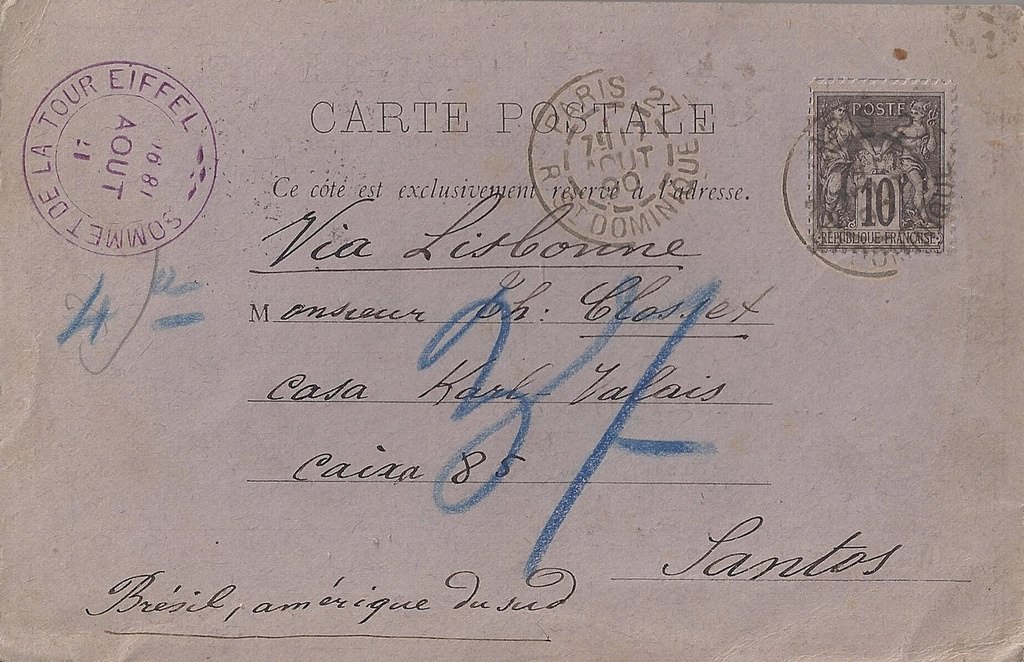 SOMMET DE LA TOUR EIFFEL
17
AOUT
1891
CARTE POSTALE
PARIS 27
AOUT
90
R. ST DOMINIQUE
POSTE
10
REPUBLIQUE FRANÇAISE
Ce côté est exclusivement réservé à l'adresse.
Via Lisbonne
Monsieur Th: Closset
casa Karl Valais
caixa 85
Santos
Brésil, amérique du sud